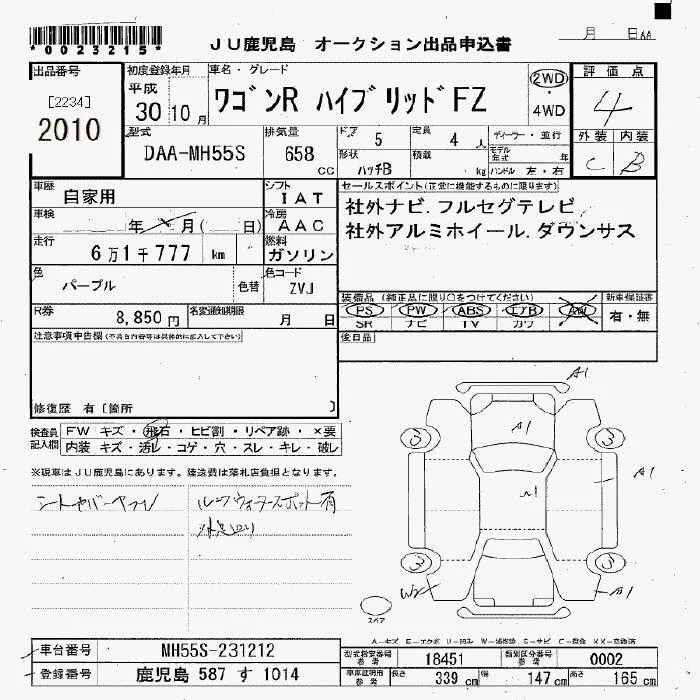 *0023215*
JU鹿児島 オークション出品申込書
月 日AA
出品番号
[2234]
2010
初度登録年月
平成
30 10 月
車名・グレード
ワゴンR ハイブリッドFZ
2WD
4WD
評価点
4
外装 内装
C B
型式
DAA-MH55S
排気量
658 CC
ドア 5
定員 4 人
ディーラー・並行
形状 ハッチB
積載 kg
モデル年式 年
ハンドル 左・右
車歴 自家用
シフト IAT
車検 年 月( 日)
冷房 AAC
走行 6万1千777 km
燃料 ガソリン
色 パープル 色替
色コード ZVJ
セールスポイント(正常に機能するものに限ります)
社外ナビ.フルセグテレビ
社外アルミホイール.ダウンサス
R券 8,850 円
名変通知期限 月 日
装備品(純正品に限り○をつけてください)
PS PW ABS エアB AW
SR ナビ TV カワ
新車保証書
有・無
後日品
注意事項申告欄(不具合内容等は具体的に記入して下さい)
修復歴 有〔箇所 〕
検査員記入欄
FW キズ・飛石・ヒビ割・リペア跡・×要
内装 キズ・汚レ・コゲ・穴・スレ・キレ・破レ
※現車はJU鹿児島にあります。陸送費は落札店負担となります。
ルーフウォータースポット有
A1
A1
3 3
A1
3 3
W2 A1
スペア
A-キズ E-エクボ
車台番号 MH55S-231212
登録番号 鹿児島 587 す 1014
型式指定番号 参考 18451
類別区分番号 参考 0002
車庫証明用 参考 長さ 339 cm 幅 147 cm 高さ 165 cm